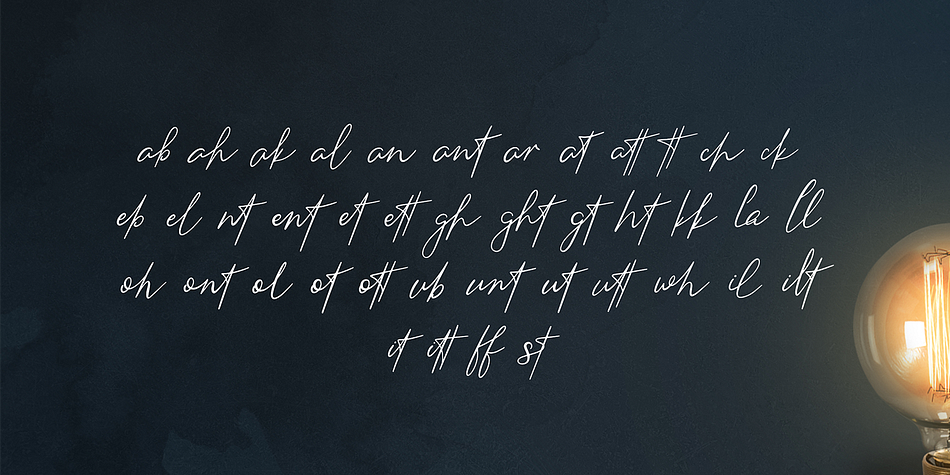 ab ah ak al an ant ar at att tt ch ck
eb el nt ent et ett gh ght gt ht kk la ll
oh ont ol ot ott ub unt ut utt wh il ilt
it itt ff st